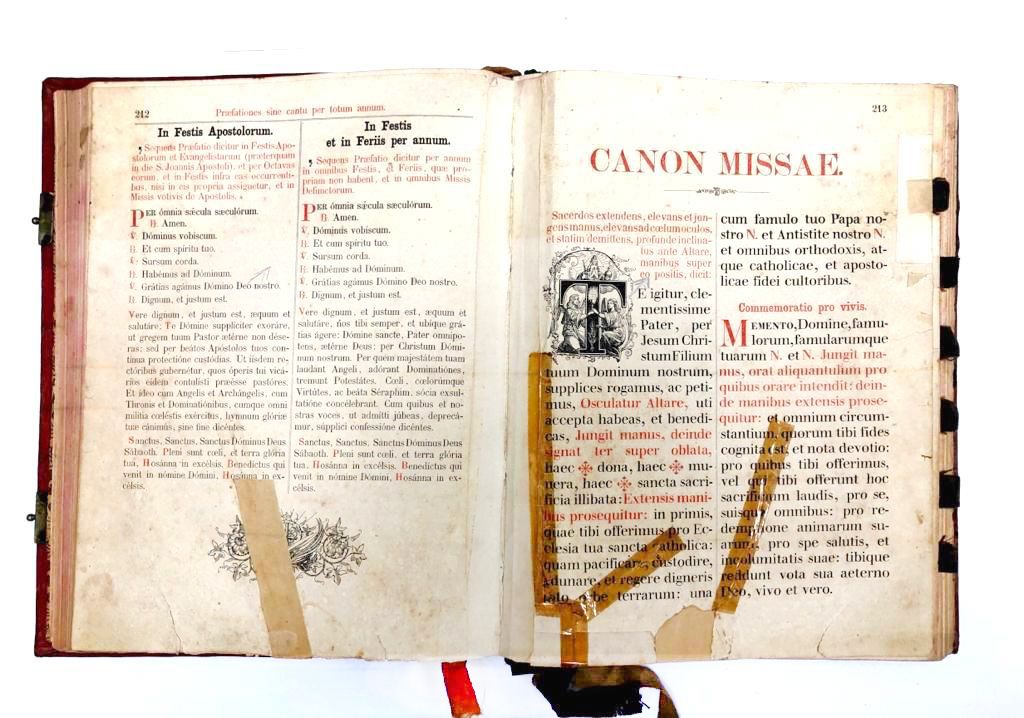 212
Præfationes sine cantu per totum annum.
In Festis Apostolorum.
Sequens Præfatio dicitur in Festis Apo-
stolorum et Evangelistarum (præterquam
in die S. Joannis Apostoli), et per Octavas
eorum, et in Festis infra eas occurrenti-
bus, nisi in eis propria assignetur, et in
Missis votivis de Apostolis.
PER ómnia sǽcula sæculórum.
℟. Amen.
℣. Dóminus vobíscum.
℟. Et cum spíritu tuo.
℣. Sursum corda.
℟. Habémus ad Dóminum.
℣. Grátias agámus Dómino Deo nostro.
℟. Dignum, et justum est.
Vere dignum, et justum est, æquum et
salutáre: Te Dómine supplíciter exoráre,
ut gregem tuum Pastor ætérne non dése-
ras: sed per beátos Apóstolos tuos con-
tínua protectióne custódias. Ut iísdem re-
ctóribus gubernétur, quos óperis tui vicá-
rios eídem contulísti præésse pastóres.
Et ídeo cum Angelis et Archángelis, cum
Thronis et Dominatiónibus, cumque omni
milítia cœléstis exércitus, hymnum glóriæ
tuæ cánimus, sine fine dicéntes.
Sanctus, Sanctus, Sanctus Dóminus Deus
Sábaoth. Pleni sunt cœli, et terra glória
tua. Hosánna in excélsis. Benedíctus qui
venit in nómine Dómini, Hosánna in ex-
célsis.
In Festis
et in Feriis per annum.
Sequens Præfatio dicitur per annum
in omnibus Festis, et Feriis, quæ pro-
priam non habent, et in omnibus Missis
Defunctorum.
PER ómnia sǽcula sæculórum.
℟. Amen.
℣. Dóminus vobíscum.
℟. Et cum spíritu tuo.
℣. Sursum corda.
℟. Habémus ad Dóminum.
℣. Grátias agámus Dómino Deo nostro.
℟. Dignum, et justum est.
Vere dignum, et justum est, æquum et
salutáre, nos tibi semper, et ubíque grá-
tias ágere: Dómine sancte, Pater omnípo-
tens, ætérne Deus: per Christum Dómi-
num nostrum. Per quem majestátem tuam
laudant Angeli, adórant Dominatiónes,
tremunt Potestátes. Cœli, cœlorúmque
Virtútes, ac beáta Séraphim, sócia exsul-
tatióne concélebrant. Cum quibus et no-
stras voces, ut admítti júbeas, deprecá-
mur, súpplici confessióne dicéntes.
Sanctus, Sanctus, Sanctus Dóminus Deus
Sábaoth. Pleni sunt cœli, et terra glória
tua. Hosánna in excélsis. Benedíctus qui
venit in nómine Dómini. Hosánna in ex-
célsis.
213
CANON MISSAE.
Sacerdos extendens, elevans et jun-
gens manus, elevans ad cœlum oculos,
et statim demittens, profunde inclina-
tus ante Altare,
manibus super
eo positis, dicit:
TE igitur, cle-
mentissime
Pater, per
Jesum Chri-
stum Filium
tuum Dominum nostrum,
supplices rogamus, ac peti-
mus, Osculatur Altare, uti
accepta habeas, et benedi-
cas, Jungit manus, deinde
signat ter super oblata,
haec ✠ dona, haec ✠ mu-
nera, haec ✠ sancta sacri-
ficia illibata: Extensis mani-
bus prosequitur: in primis,
quae tibi offerimus pro Ec-
clesia tua sancta catholica:
quam pacificare, custodire,
adunare, et regere digneris
toto orbe terrarum: una
cum famulo tuo Papa no-
stro N. et Antistite nostro N.
et omnibus orthodoxis, at-
que catholicae, et aposto-
licae fidei cultoribus.
Commemoratio pro vivis.
MEMENTO, Domine, famu-
lorum, famularumque
tuarum N. et N. Jungit ma-
nus, orat aliquantulum pro
quibus orare intendit: dein-
de manibus extensis prose-
quitur: et omnium circum-
stantium, quorum tibi fides
cognita est, et nota devotio:
pro quibus tibi offerimus,
vel qui tibi offerunt hoc
sacrificium laudis, pro se,
suisque omnibus: pro re-
demptione animarum su-
arum, pro spe salutis, et
incolumitatis suae: tibique
reddunt vota sua aeterno
Deo, vivo et vero.